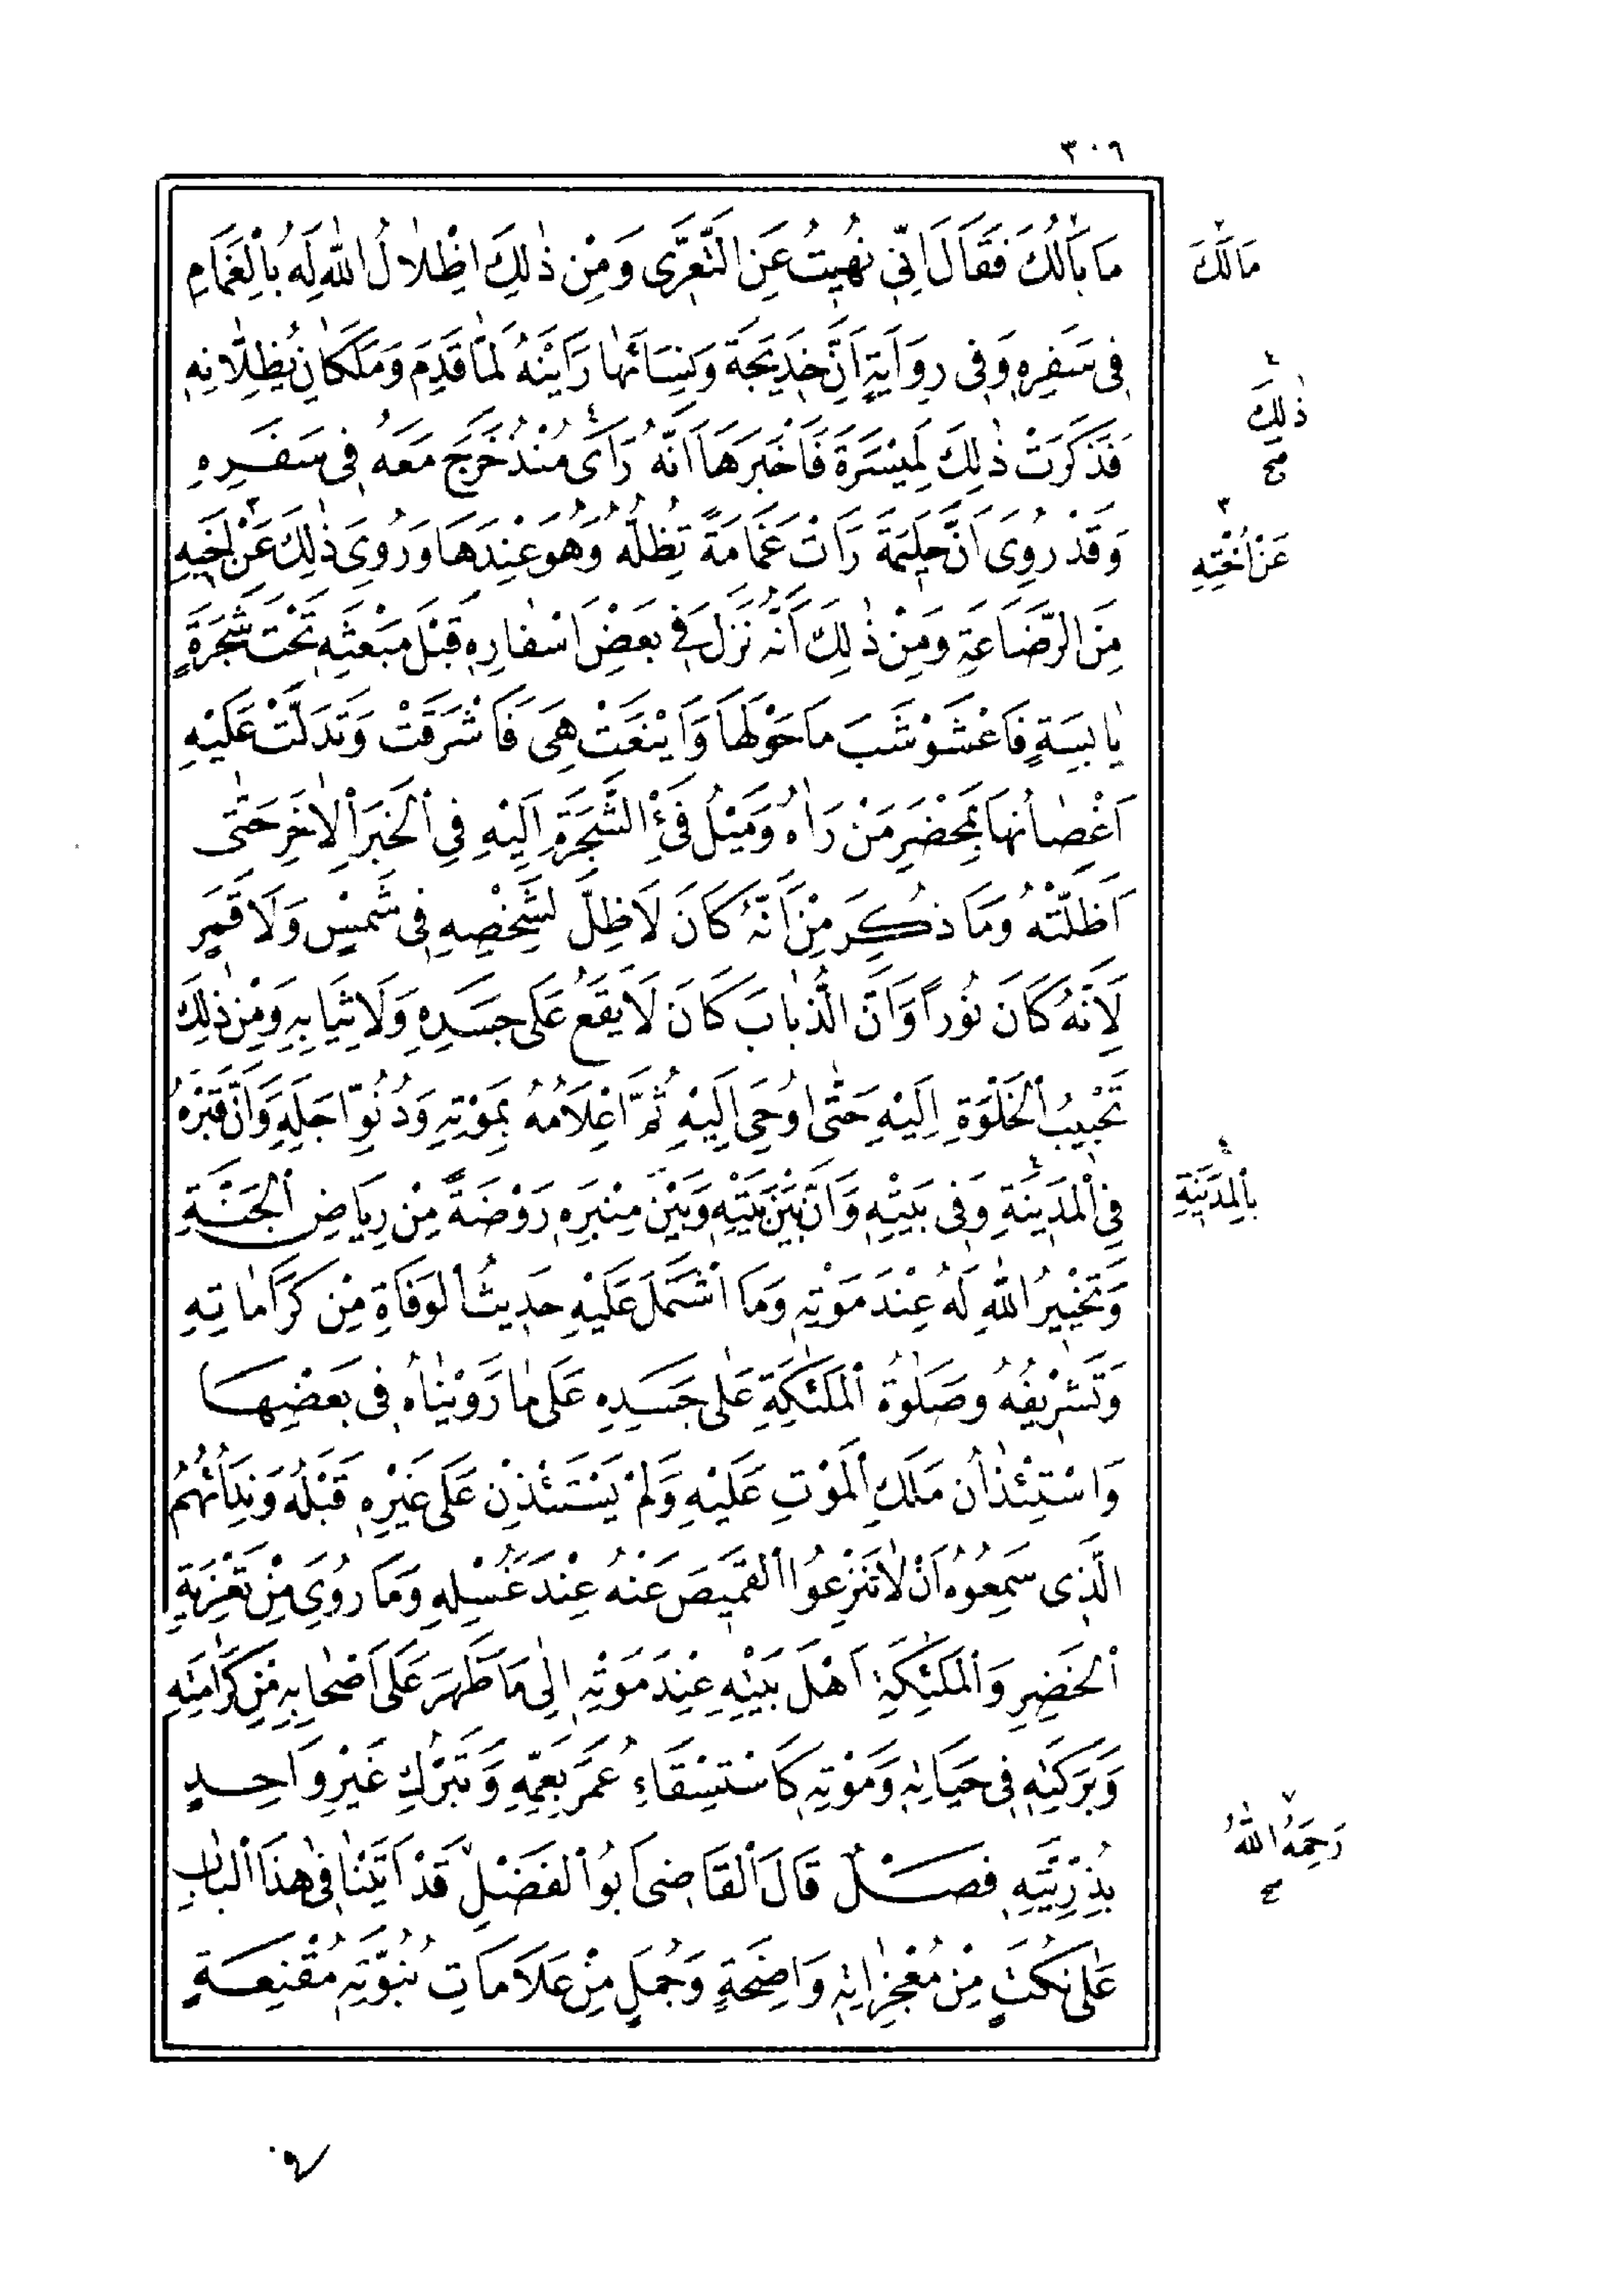 ٣٠٦
مَا بَالُكَ فَقَالَ اِنّى نُهِيتُ عَنِ التَّعَرّى وَمِنْ ذٰلِكَ اِظْلَالُ اللهِ لَهُ بِالْغَمَامِ
مَالَكَ
فى سَفَرِه وَفى رِوَايَةٍ اَنَّ خَديجَةَ وَنِسَائَهَا رَاَيْنَهُ لَمَّا قَدِمَ وَمَلَكَانِ يُظِلَّانِه
ذٰلِكَ
صح
فَذَكَرَتْ ذٰلِكَ لِمَيْسَرَةَ فَاَخْبَرَهَا اَنَّهُ رَاٰى مُنْذُ خَرَجَ مَعَهُ فى سَفَرِهِ
وَقَدْ رُوِىَ اَنَّ حَليمَةَ رَاَتْ غَمَامَةً تُظِلُّهُ وَهُوَ عِنْدَهَا وَرُوِىَ ذٰلِكَ عَنْ اَخيهِ
عَنْ اُخْتِهِ
مِنَ الرَّضَاعَةِ وَمِنْ ذٰلِكَ اَنَّهُ نَزَلَ فى بَعْضِ اَسْفَارِه قَبْلَ مَبْعَثِه تَحْتَ شَجَرَةٍ
يَابِسَةٍ فَاعْشَوْشَبَ مَا حَوْلَهَا وَاَيْنَعَتْ هِىَ فَاَشْرَقَتْ وَتَدَلَّتْ عَلَيْهِ
اَغْصَانُهَا بِمَحْضَرِ مَنْ رَاٰهُ وَمَيْلُ فَىْءِ الشَّجَرَةِ اِلَيْهِ فِى الْخَبَرِ الْاٰخَرِ حَتّٰى
اَظَلَّتْهُ وَمَا ذُكِرَ مِنْ اَنَّهُ كَانَ لَا ظِلَّ لِشَخْصِهِ فى شَمْسٍ وَلَا قَمَرٍ
لِاَنَّهُ كَانَ نُوراً وَاَنَّ الذُّبَابَ كَانَ لَا يَقَعُ عَلَى جَسَدِهِ وَلَا ثِيَابِهِ وَمِنْ ذٰلِكَ
تَحْبيبُ الْخَلْوَةِ اِلَيْهِ حَتّٰى اُوحِىَ اِلَيْهِ ثُمَّ اِعْلَامُهُ بِمَوْتِهِ وَدُنُوِّ اَجَلِهِ وَاَنَّ قَبْرَهُ
فِى الْمَدينَةِ وَفى بَيْتِه وَاَنَّ بَيْنَ بَيْتِه وَبَيْنَ مِنْبَرِه رَوْضَةً مِنْ رِيَاضِ الْجَنَّةِ
بِالْمَدينَةِ
وَتَخْييرُ اللهِ لَهُ عِنْدَ مَوْتِه وَمَا اشْتَمَلَ عَلَيْهِ حَديثُ الْوَفَاةِ مِنْ كَرَامَاتِهِ
وَتَشْريفِهُ وَصَلٰوةُ الْمَلٰئِكَةِ عَلٰى جَسَدِهِ عَلَى مَا رَوَيْنَاهُ فى بَعْضِهَا
وَاسْتِئْذَانُ مَلَكِ الْمَوْتِ عَلَيْهِ وَلَمْ يَسْتَئْذِنْ عَلَى غَيْرِه قَبْلَهُ وَنِدَائُهُمُ
الَّذى سَمِعُوهُ اَنْ لَا تَنْزِعُوا الْقَميصَ عَنْهُ عِنْدَ غُسْلِهِ وَمَا رُوِىَ مِنْ تَعْزِيَةِ
الْخَضِرِ وَالْمَلٰئِكَةِ اَهْلَ بَيْتِهِ عِنْدَ مَوْتِه اِلٰى مَا ظَهَرَ عَلَى اَصْحَابِهِ مِنْ كَرَامَتِهِ
وَبَرَكَتِه فى حَيَاتِه وَمَوْتِه كَاسْتِسْقَاءِ عُمَرَ بِعَمِّهِ وَتَبَرُّكِ غَيْرِ وَاحِدٍ
بِذُرِّيَّتِه فَصْلٌ قَالَ الْقَاضى اَبُو الْفَضْلِ قَدْ اَتَيْنَا فى هٰذَا الْبَابِ
رَحِمَهُ اللهُ
صح
عَلٰى نُكَتٍ مِنْ مُعْجِزَاتِه وَاضِحَةٍ وَجُمَلٍ مِنْ عَلَامَاتِ نُبُوَّتِه مُقْنِعَةٍ